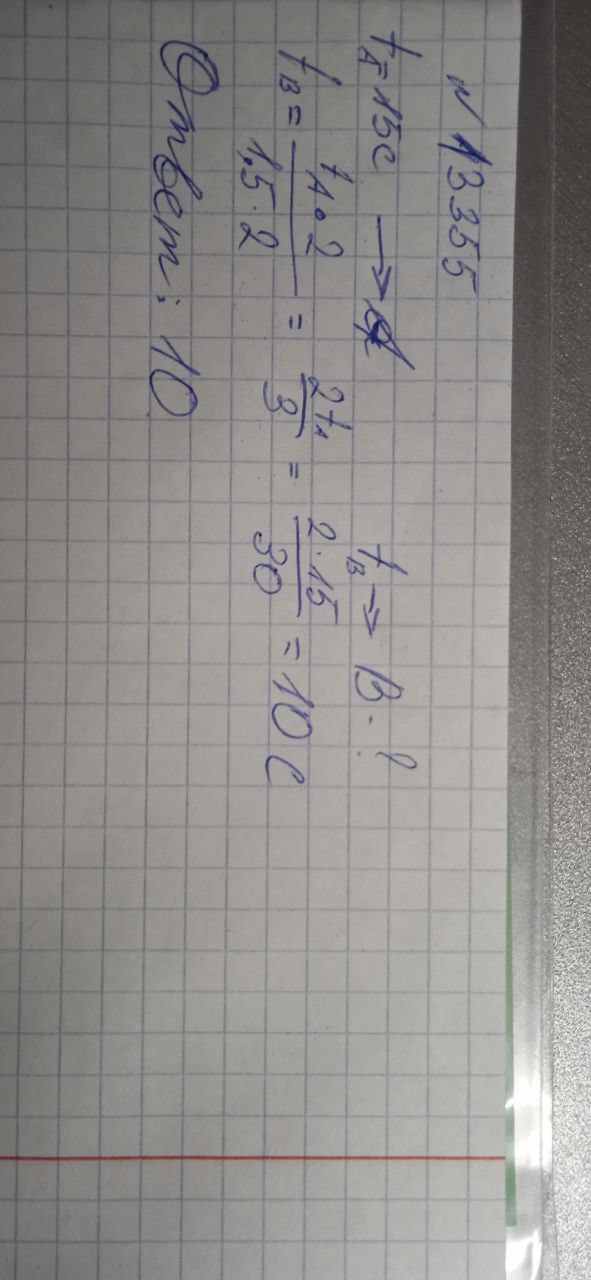 № 13355
t_A = 15с → t_B → В - ?
t_B = (t_A • 2)/(1,5 · 2) = 2t_A/3 = (2 · 15)/30 = 10 с
Ответ: 10